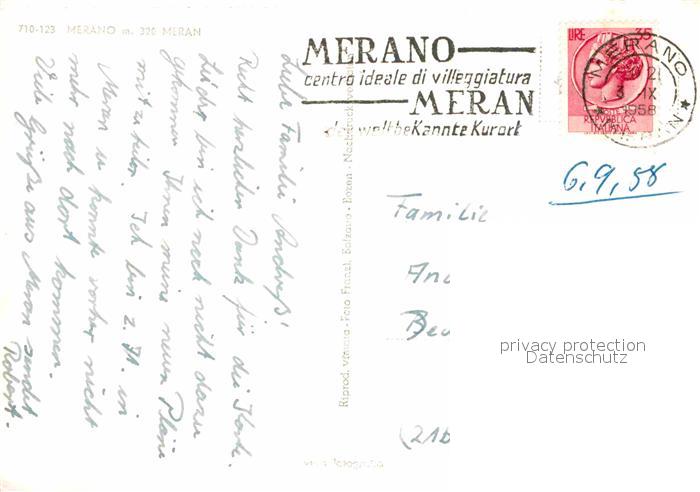 710-123 MERANO m. 320 MERAN
MERANO
centro ideale di villeggiatura
MERAN
weltbekannte Kurort
LIRE 35
REPUBBLICA
ITALIANA
MERANO
3 IX
1958
6.9.58
Liebe Familie
Recht herzlichen Dank für die Karte.
Leider bin ich noch nicht dazu
gekommen Ihnen meine neuen Pläne
mitzuteilen. Ich bin z. Zt. in
Meran u. konnte vorher nicht
mehr nach dort kommen.
Viele Grüße aus Meran sendet
Robert.
Riprod. vietata - Foto Fränzl, Bolzano - Bozen - Nachdruck
vera fotografia
Familie
An
Be
(21b
privacy protection
Datenschutz